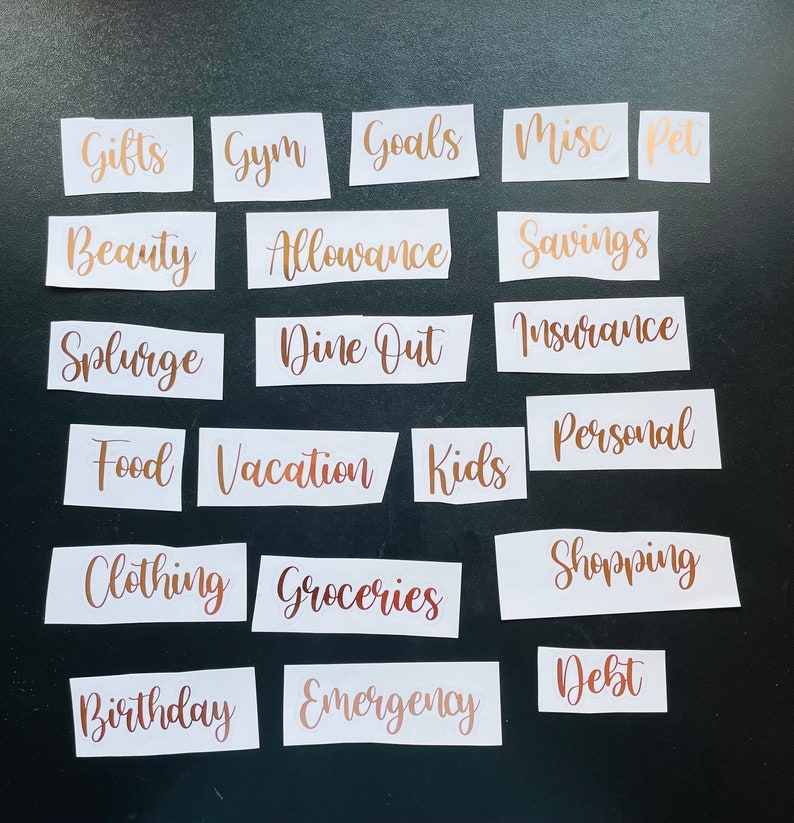 Gifts Gym Goals Misc Pet
Beauty Allowance Savings
Splurge Dine Out Insurance
Food Vacation Kids Personal
Clothing Groceries Shopping
Birthday Emergency Debt